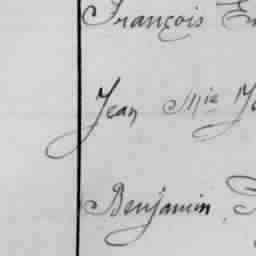 François
Jean Mie
Benjamin